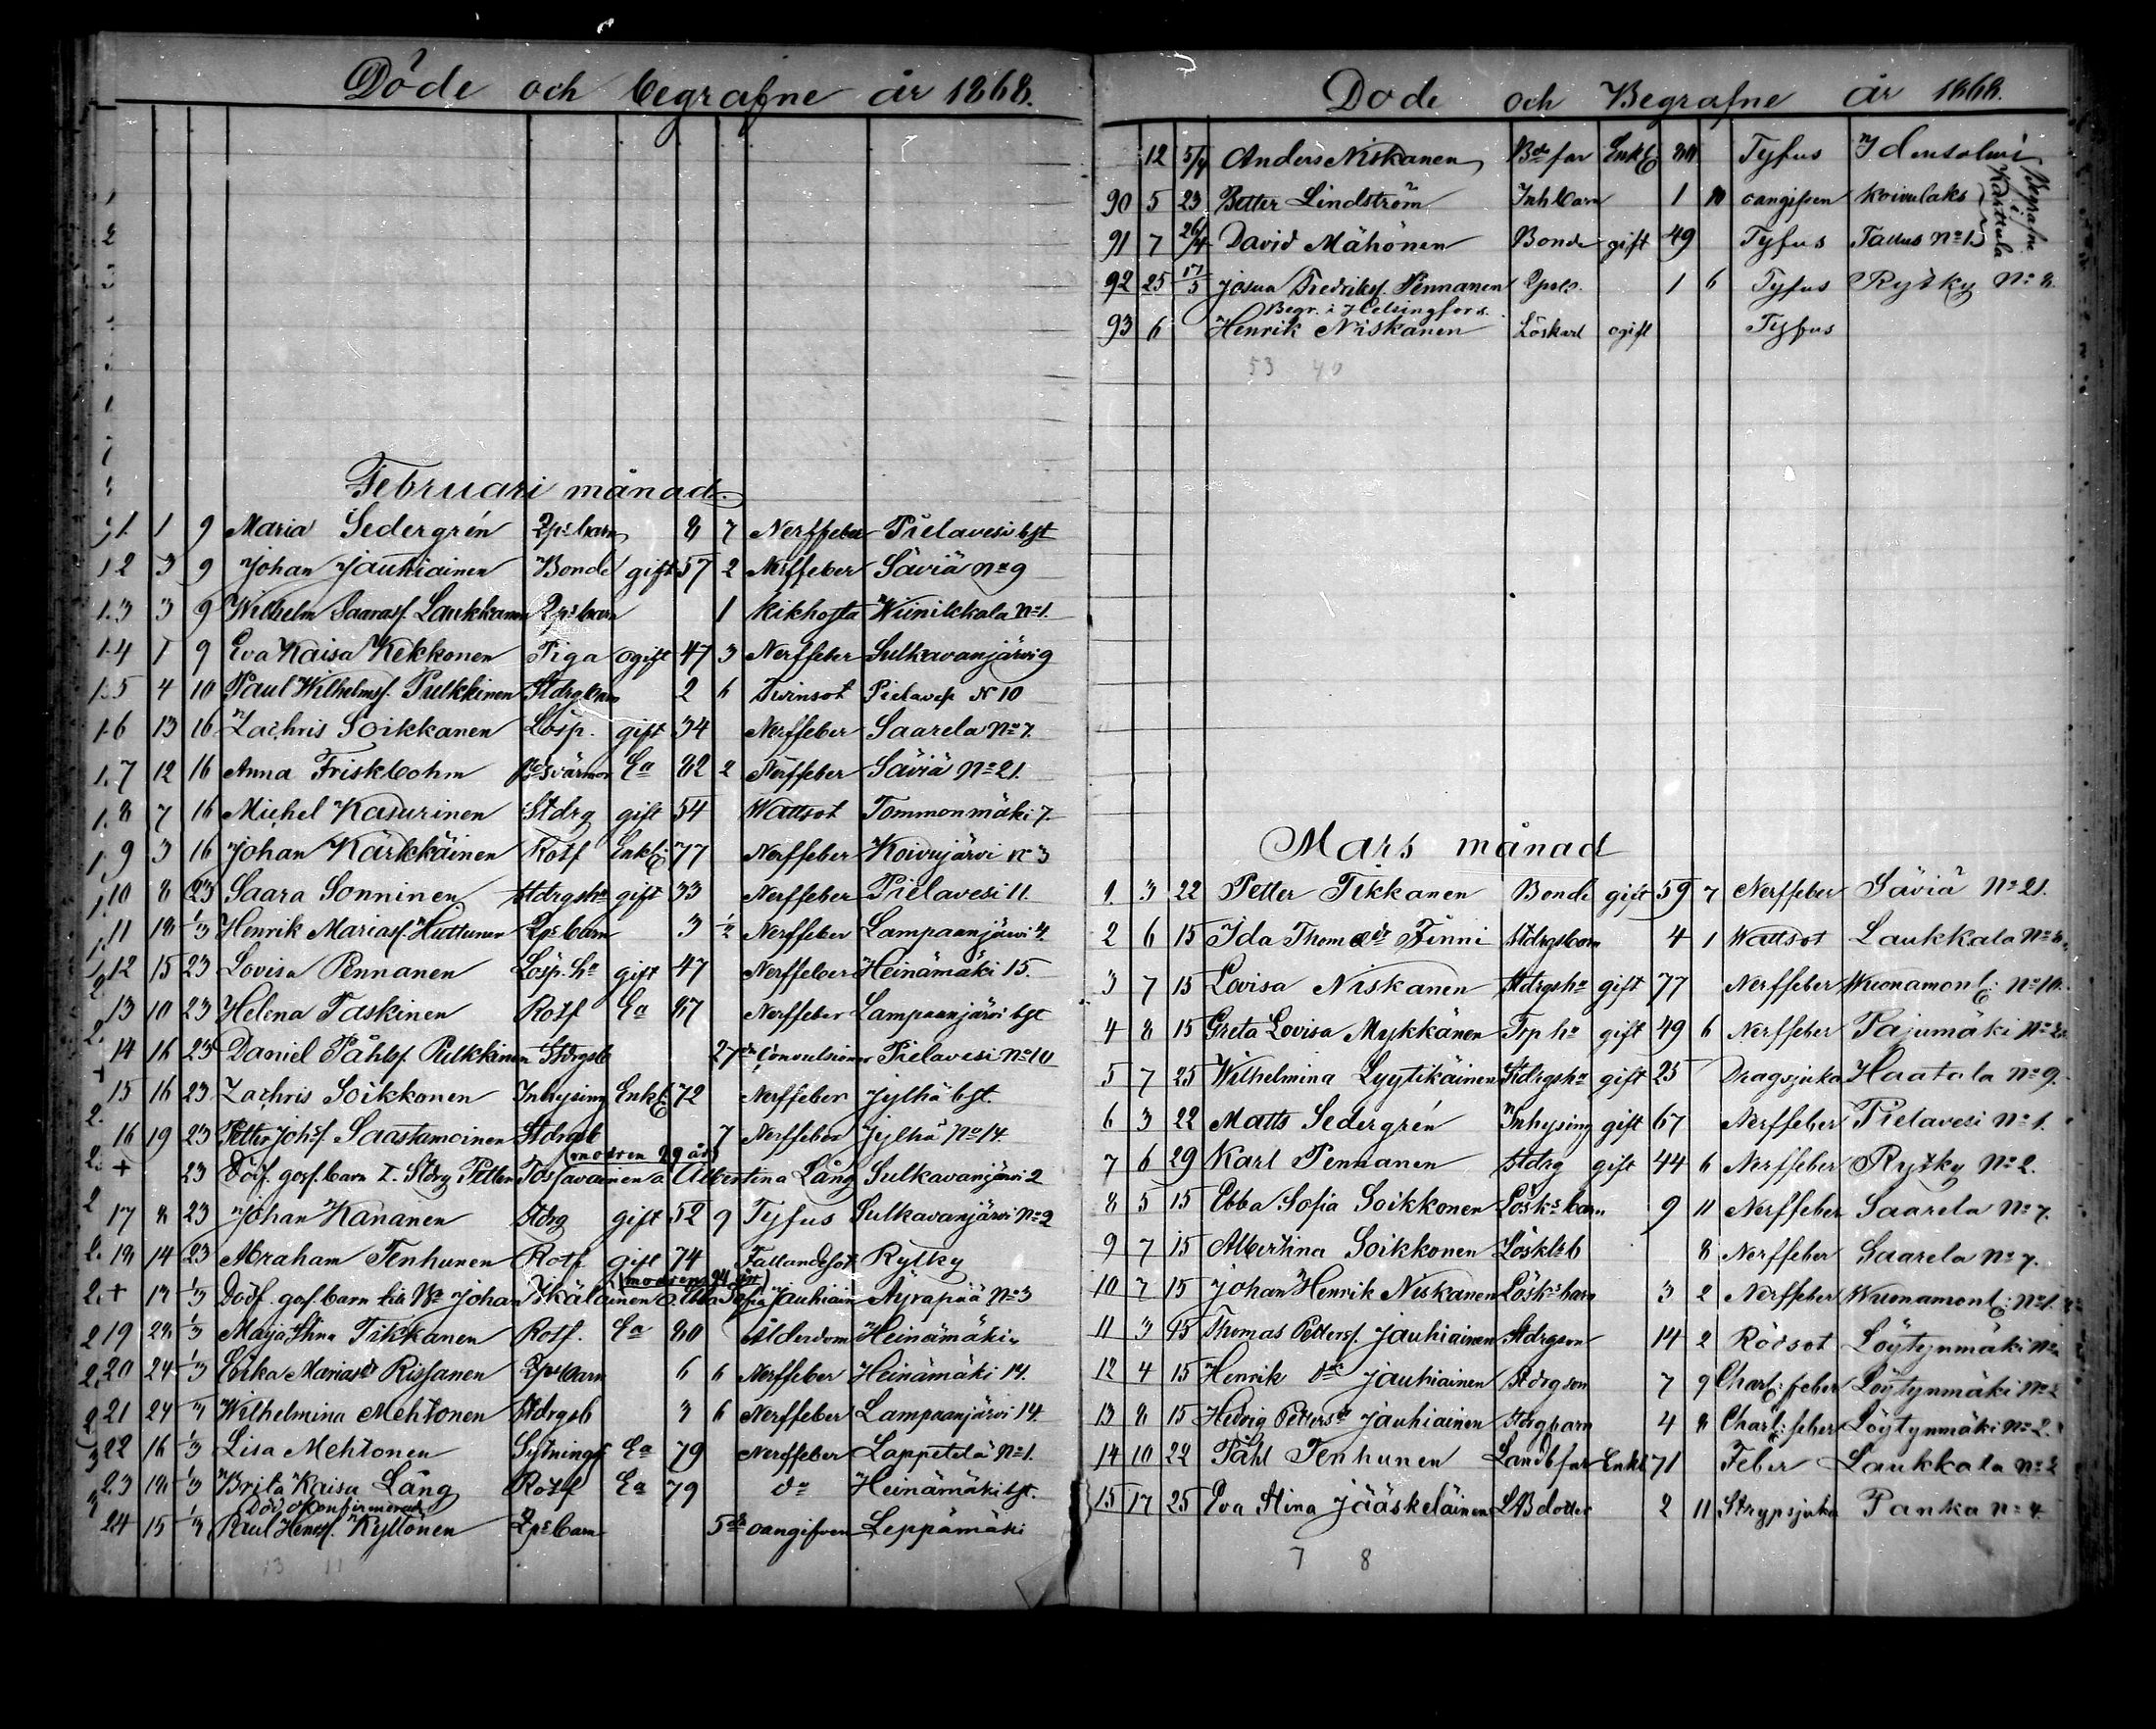 Döde och begrafne år 1868.
Februari månad
1 1 9 Maria Sedergrén Zps barn 8 7 Nerffeber Pielavesi bst
2 3 9 Johan Jauhiainen Bonde gift 57 2 Nerffeber Säviä No 9
3 3 9 Wilhelm Saarasf. Laukkanen Zps barn 1 Kikhosta Wiinikkala No 1.
4 1 9 Eva Kaisa Kekkonen Piga ogift 47 3 Nerffeber Sulkavanjärvi 9
5 4 10 Paul Wilhelmsf. Pulkkinen Stdrgbarn 2 6 Tvinsot Pielaves N 10
6 13 16 Zachris Soikkanen Lösp. gift 34 Nerffeber Saarela No 7.
7 12 16 Anna Friskbohm svärmor Ea 82 2 Nerffeber Säviä No 21.
8 7 16 Michel Kasurinen Stdrg gift 54 Wattsot Tommonmäki 7
9 3 16 Johan Kärkkäinen Rotf Enkl. 77 Nerffeber Koivujärvi No 3
10 8 23 Saara Sonninen Stdrgsha gift 33 Nerffeber Pielavesi 11.
11 18 1/3 Henrik Mariasf. Huttunen Zps barn 3 Nerffeber Lampaanjärvi 4.
12 15 23 Lovisa Pennanen Lösp. ha gift 47 Nerffeber Heinämäki 15.
13 10 23 Helena Taskinen Rotf Ea 87 Nerffeber Lampaanjärvi bst
14 16 23 Daniel Påhlsf. Pulkkinen Stdrgsb 27 dr Convulsioner Pielavesi No 10
15 16 23 Zachris Soikkonen Inhysing Enkl. 72 Nerffeber Jylhä bst.
16 19 23 Petter Johsf. Saastamoinen Stdrgsb 7 Nerffeber Jylhä No 14.
(modren 29 år)
+ 23 Döf. gosf. barn t. Stdrg Petter Tossavainen o Albertina Lång Sulkavanjärvi 2
17 8 23 Johan Kananen Stdrg gift 52 9 Tyfus Sulkavanjärvi No 2
18 14 23 Abraham Tenhunen Rotf. gift 74 Fallandesot Rytky
(modren 24 år)
+ 17 1/3 Dödf. gosf. barn till Johan Ikäläinen o. Ebba Sofia Jauhiain Äyräpää No 3
19 28 1/3 Maja Stina Tikkanen Rotf. Ea 80 Ålderdom Heinämäki
20 24 1/3 Erika Mariasdr Rissanen Zps barn 6 6 Nerffeber Heinämäki 14.
21 24 1/3 Wilhelmina Mehtonen Stdrgsb 3 6 Nerffeber Lampaanjärvi 14.
22 16 1/3 Lisa Mehtonen Sytningsf Ea 79 Nerffeber Lappetelä No 1.
23 18 1/3 Brita Kaisa Lång Rotf Ea 79 do Heinämäki bst.
Död okonfirmerad
24 15 1/3 Paul Henrsf. Kyllönen Zps barn 5 oangifven Leppämäki
13 11
Dode och Begrafne år 1868.
12 5/4 Anders Niskanen Bde far Enkl. 80 Tyfus Idensalmi
90 5 23 Petter Lindström Inh barn 1 10 oangifven Koivulaks
91 7 26/4 David Mähönen Bonde gift 49 Tyfus Tallus No 1.
Begrafne i Karttula
92 25 17/5 Josua Fredriksf. Pennanen 1 6 Tyfus Rytky No 8
Begr. i Helsingfors.
93 6 Henrik Niskanen Löskarl ogift Tyfus
53 40
Mars månad
1. 3 22 Petter Tikkanen Bonde gift 59 7 Nerffeber Säviä No 21.
2 6 15 Ida Thomædr Finni Stdrgsbarn 4 1 Wattsot Laukkala No
3 7 15 Lovisa Niskanen Stdrgsha gift 77 Nerffeber Wuonamonl: No 10.
4 8 15 Greta Lovisa Mykkänen Trp ha gift 49 6 Nerffeber Pajumäki No
5 7 25 Wilhelmina Lyytikäinen Stdrgsha gift 25 Dragsjuka Haatala No 9.
6 3 22 Matts Sedergrén Inhysing gift 67 Nerffeber Pielavesi No 1.
7 6 29 Karl Pennanen Stdrg gift 44 6 Nerffeber Rytky No 2.
8 5 15 Ebba Sofia Soikkonen Lösks barn 9 11 Nerffeber Saarela No 7.
9 7 15 Albertina Soikkonen Löskls b 8 Nerffeber Saarela No 7.
10 7 15 Johan Henrik Niskanen Lösks barn 3 2 Nerffeber Wuonamonl: No 1.
11 3 15 Thomas Pettersf. Jauhiainen Stdrgson 14 2 Rödsot Löytynmäki No
12 4 15 Henrik do Jauhiainen Stdrgson 7 9 Charl: feber Löytynmäki No 2
13 8 15 Hedvig Pettersdr Jauhiainen Stdrgbarn 4 8 Charl: feber Löytynmäki No 2.
14 10 22 Påhl Tenhunen Landbfar Enkl 71 Feber Laukkala No 2
15 17 25 Eva Stina Jääskeläinen LBdotter 2 11 Strypsjuka Panka No 4
7 8